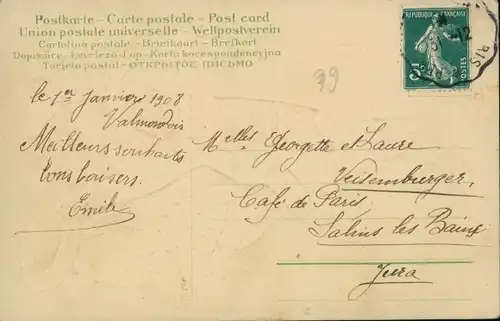 Postkarte - Carte postale - Post card
Union postale universelle - Weltpostverein
Cartolina postale - Briefkaart - Brefkort
Dopisnice - Levelező-Lap - Karta korespondencyjna
Tarjeta postal - ОТКРЫТОЕ ПИСЬМО
RÉPUBLIQUE FRANÇAISE
5c
POSTES
99
le 1er Janvier 1908
Valmondois
Meilleurs souhaits
bons baisers.
Emile
Melles Georgette et Laure
Veisemburger,
Café de Paris
Salins les Bains
Jura